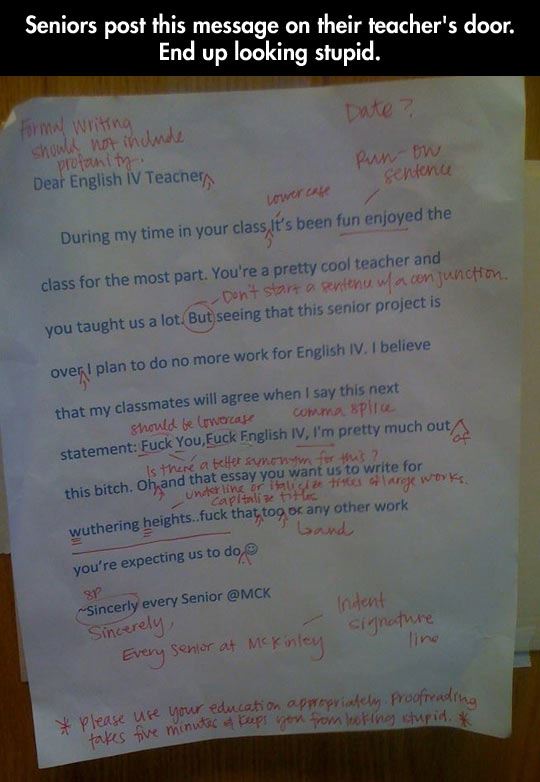 Seniors post this message on their teacher's door.
End up looking stupid.
Formal writing
should not include
profanity.
Date?
Dear English IV Teacher
Run-on
sentence
lowercase
During my time in your class It's been fun enjoyed the
class for the most part. You're a pretty cool teacher and
Don't start a sentence w/ a conjunction.
you taught us a lot. But seeing that this senior project is
over I plan to do no more work for English IV. I believe
that my classmates will agree when I say this next
should be lowercase
comma splice
statement: Fuck You,Fuck English IV, I'm pretty much out
of
Is there a better synonym for this?
this bitch. Oh and that essay you want us to write for
underline or italicize titles of large works.
capitalize titles
wuthering heights..fuck that too or any other work
and
you're expecting us to do ☺
sp
~Sincerly every Senior @MCK
Sincerely,
Every senior at McKinley
Indent
signature
line
* Please use your education appropriately. Proofreading
takes five minutes & keeps you from looking stupid. *